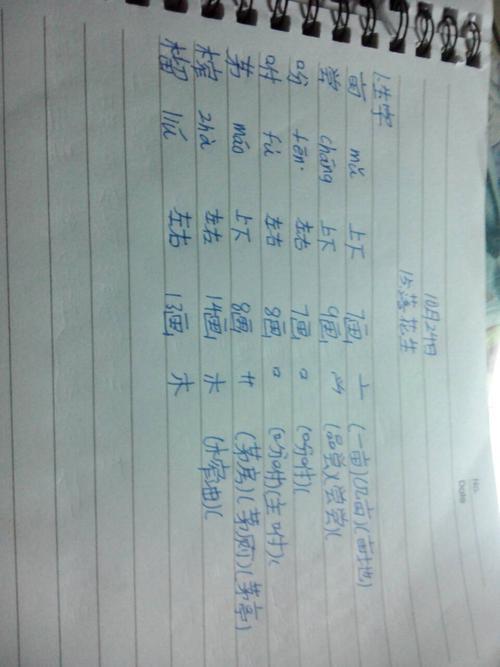 No.
Date
10月24日
15落花生
1.生字
亩 mǔ 上下 7画 亠 (一亩)(几亩)(亩地)
尝 cháng 上下 9画 ⺌ (品尝)(尝尝)(
吩 fēn 左右 7画 口 (吩咐)(
咐 fù 左右 8画 口 (吩咐)(
茅 máo 上下 8画 艹 (茅房)(茅厕)(茅亭)
榨 zhà 左右 14画 木 (榨油)(
榴 liú 左右 13画 木